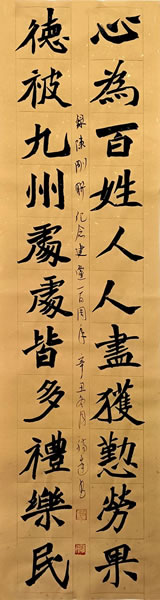 心為百姓人人盡獲懃勞果
德被九州處處皆多禮樂民
錄陳剛聯紀念建黨一百周年 辛丑